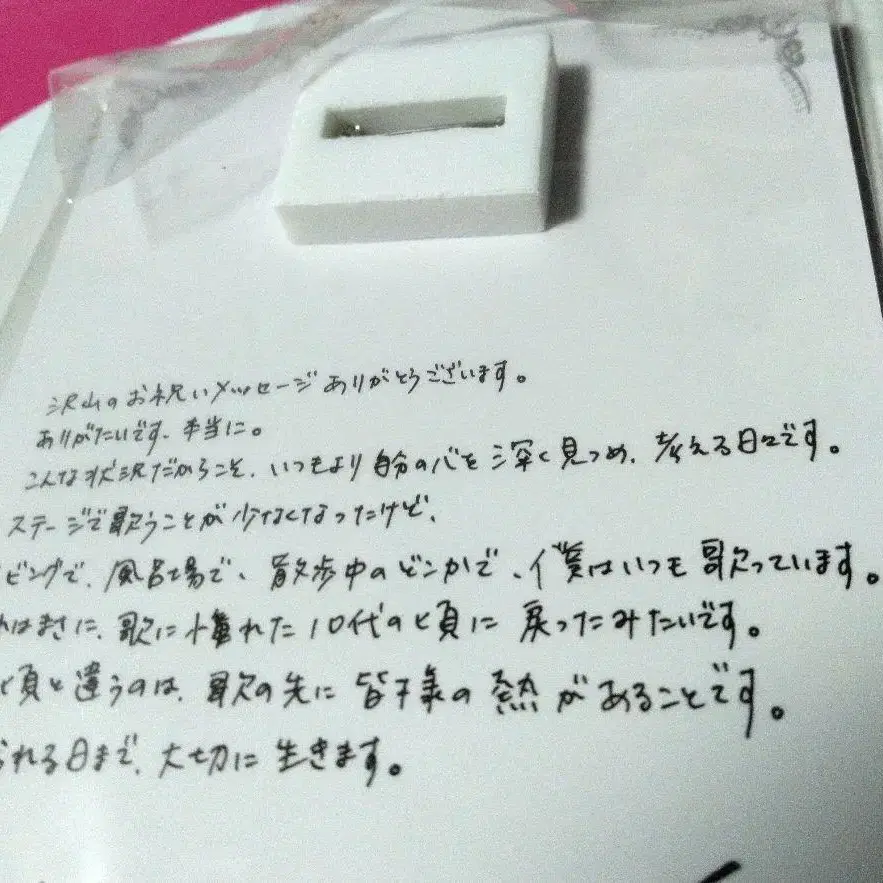 沢山のお祝いメッセージありがとうございます。
ありがたいです、本当に。
こんな状況だからこそ、いつもより自分の心を深く見つめ、考える日々です。
ステージで歌うことが少なくなったけど、
ビングで、風呂場で、散歩中のどこかで、僕はいつも歌っています。
はまさに、歌に憧れた10代の頃に戻ったみたいです。
頃と違うのは、歌の先に皆様の熱があることです。
れる日まで、大切に生きます。